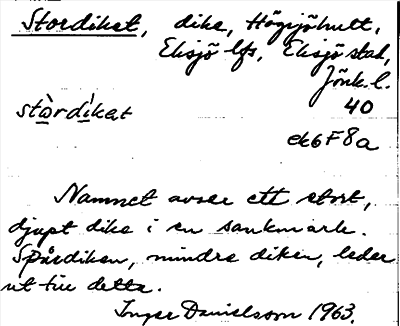 Stordiket, dike, Högsjöhult,
Eksjö lfs, Eksjö stad,
Jönk. l.
stòrdíkət 40
ek6F8a
Namnet avser ett stort,
djupt dike i en sankmark.
Spårdiken, mindre diken, leder
ut till detta.
Inger Danielsson 1963.